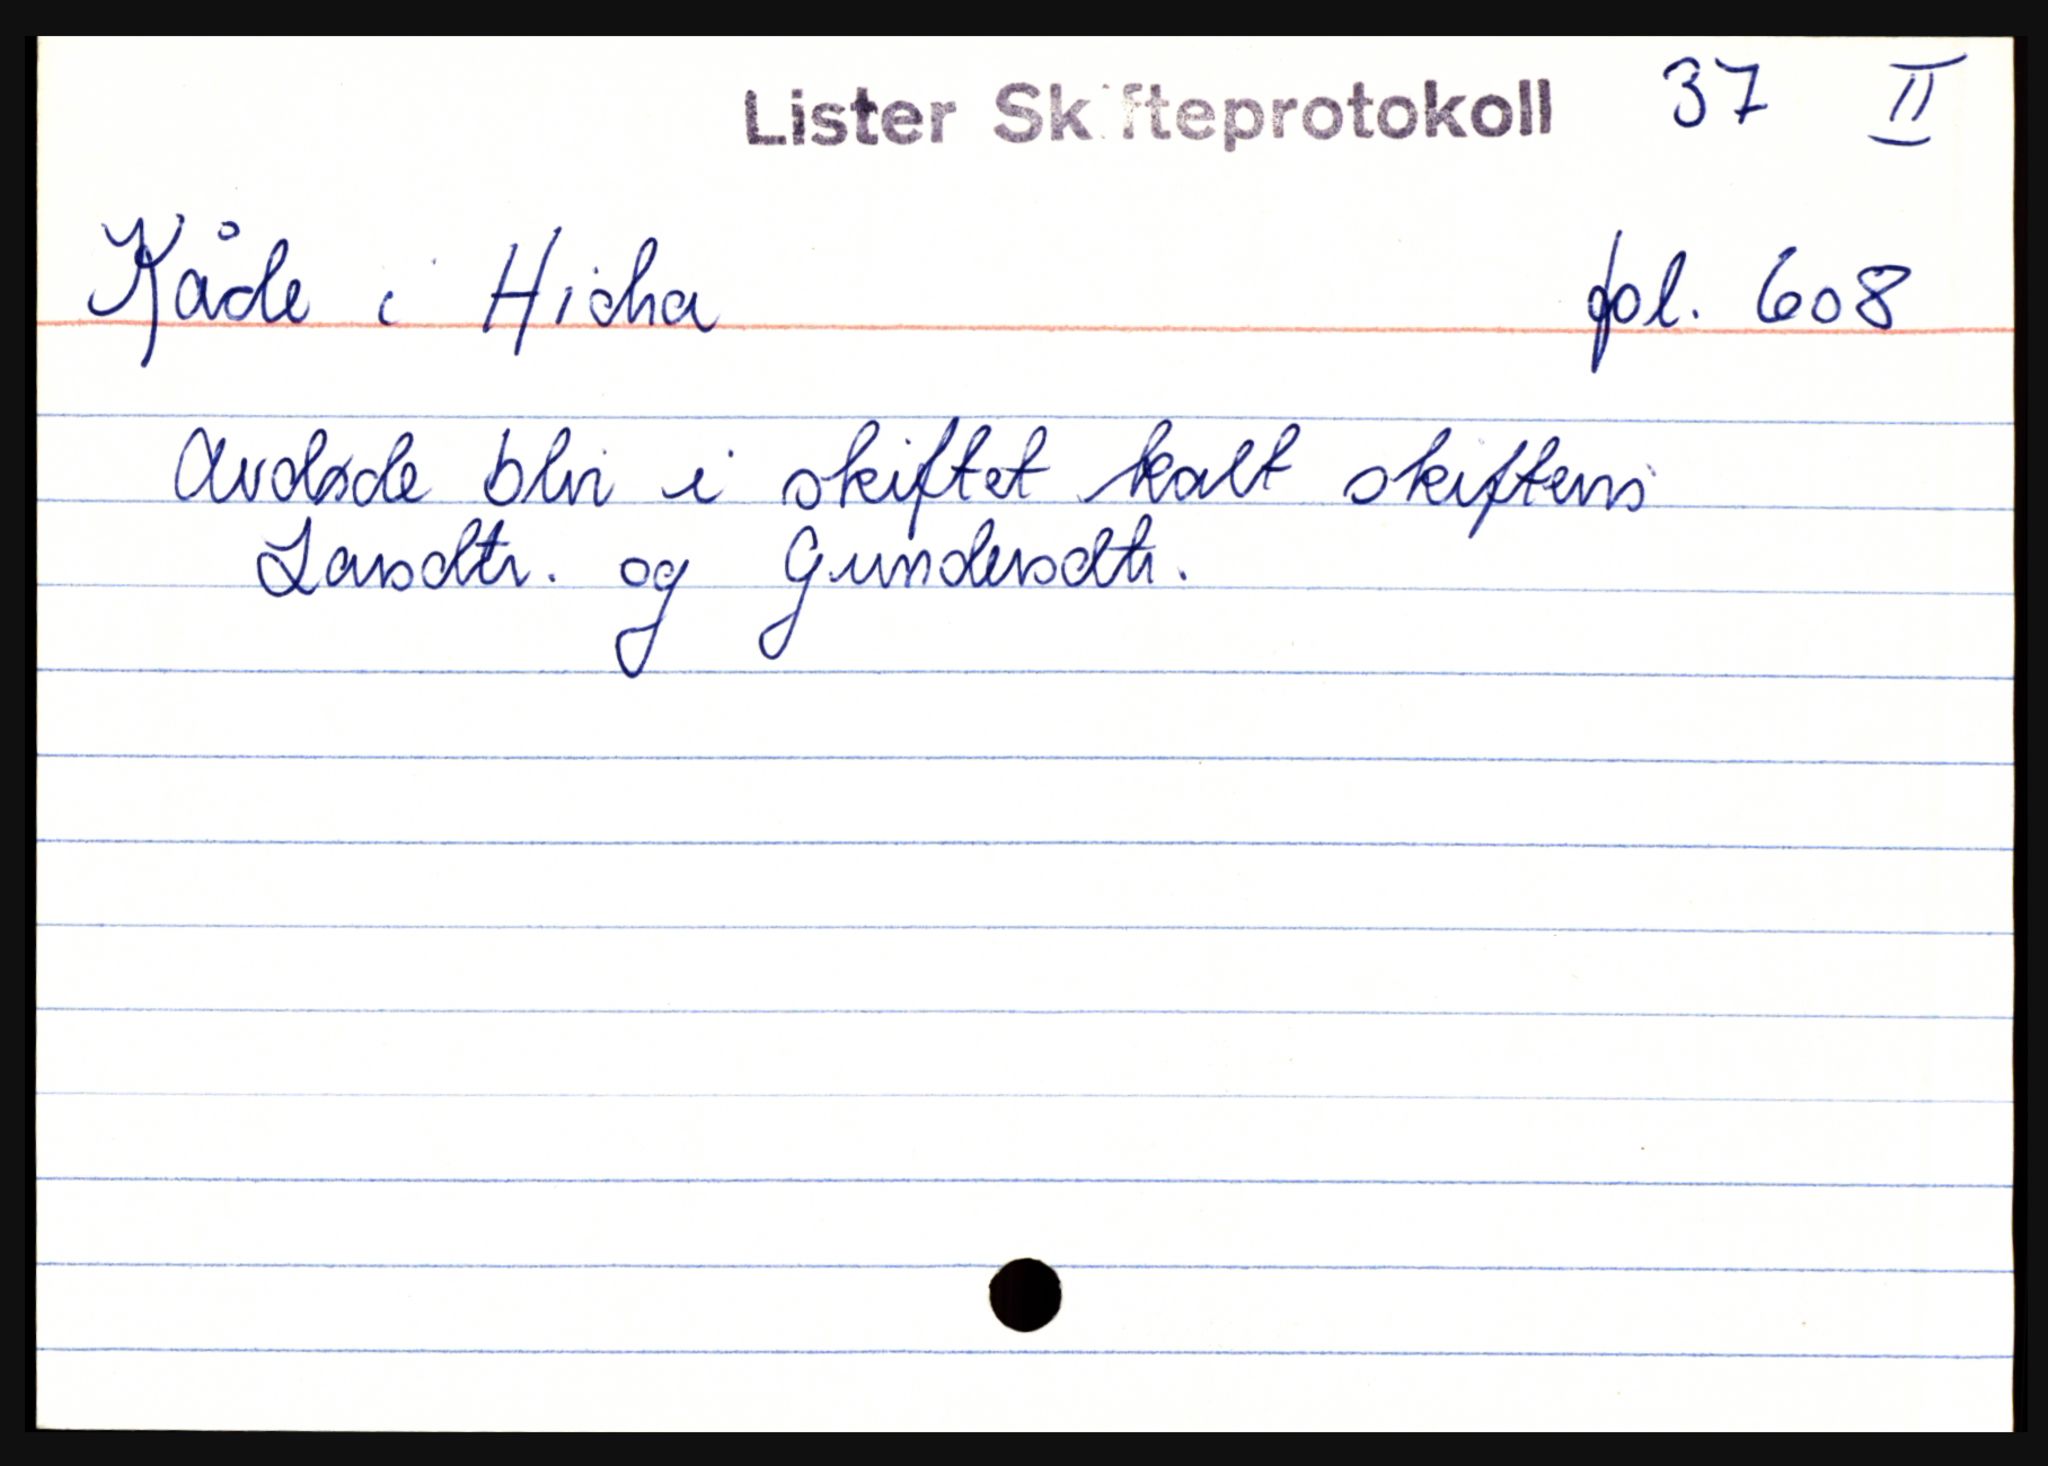 Lister Skifteprotokoll 37 II
Kåde i Hidra fol. 608
Avdøde blir i skiftet kalt skiftevis
Larsdtr. og Gundersdtr.